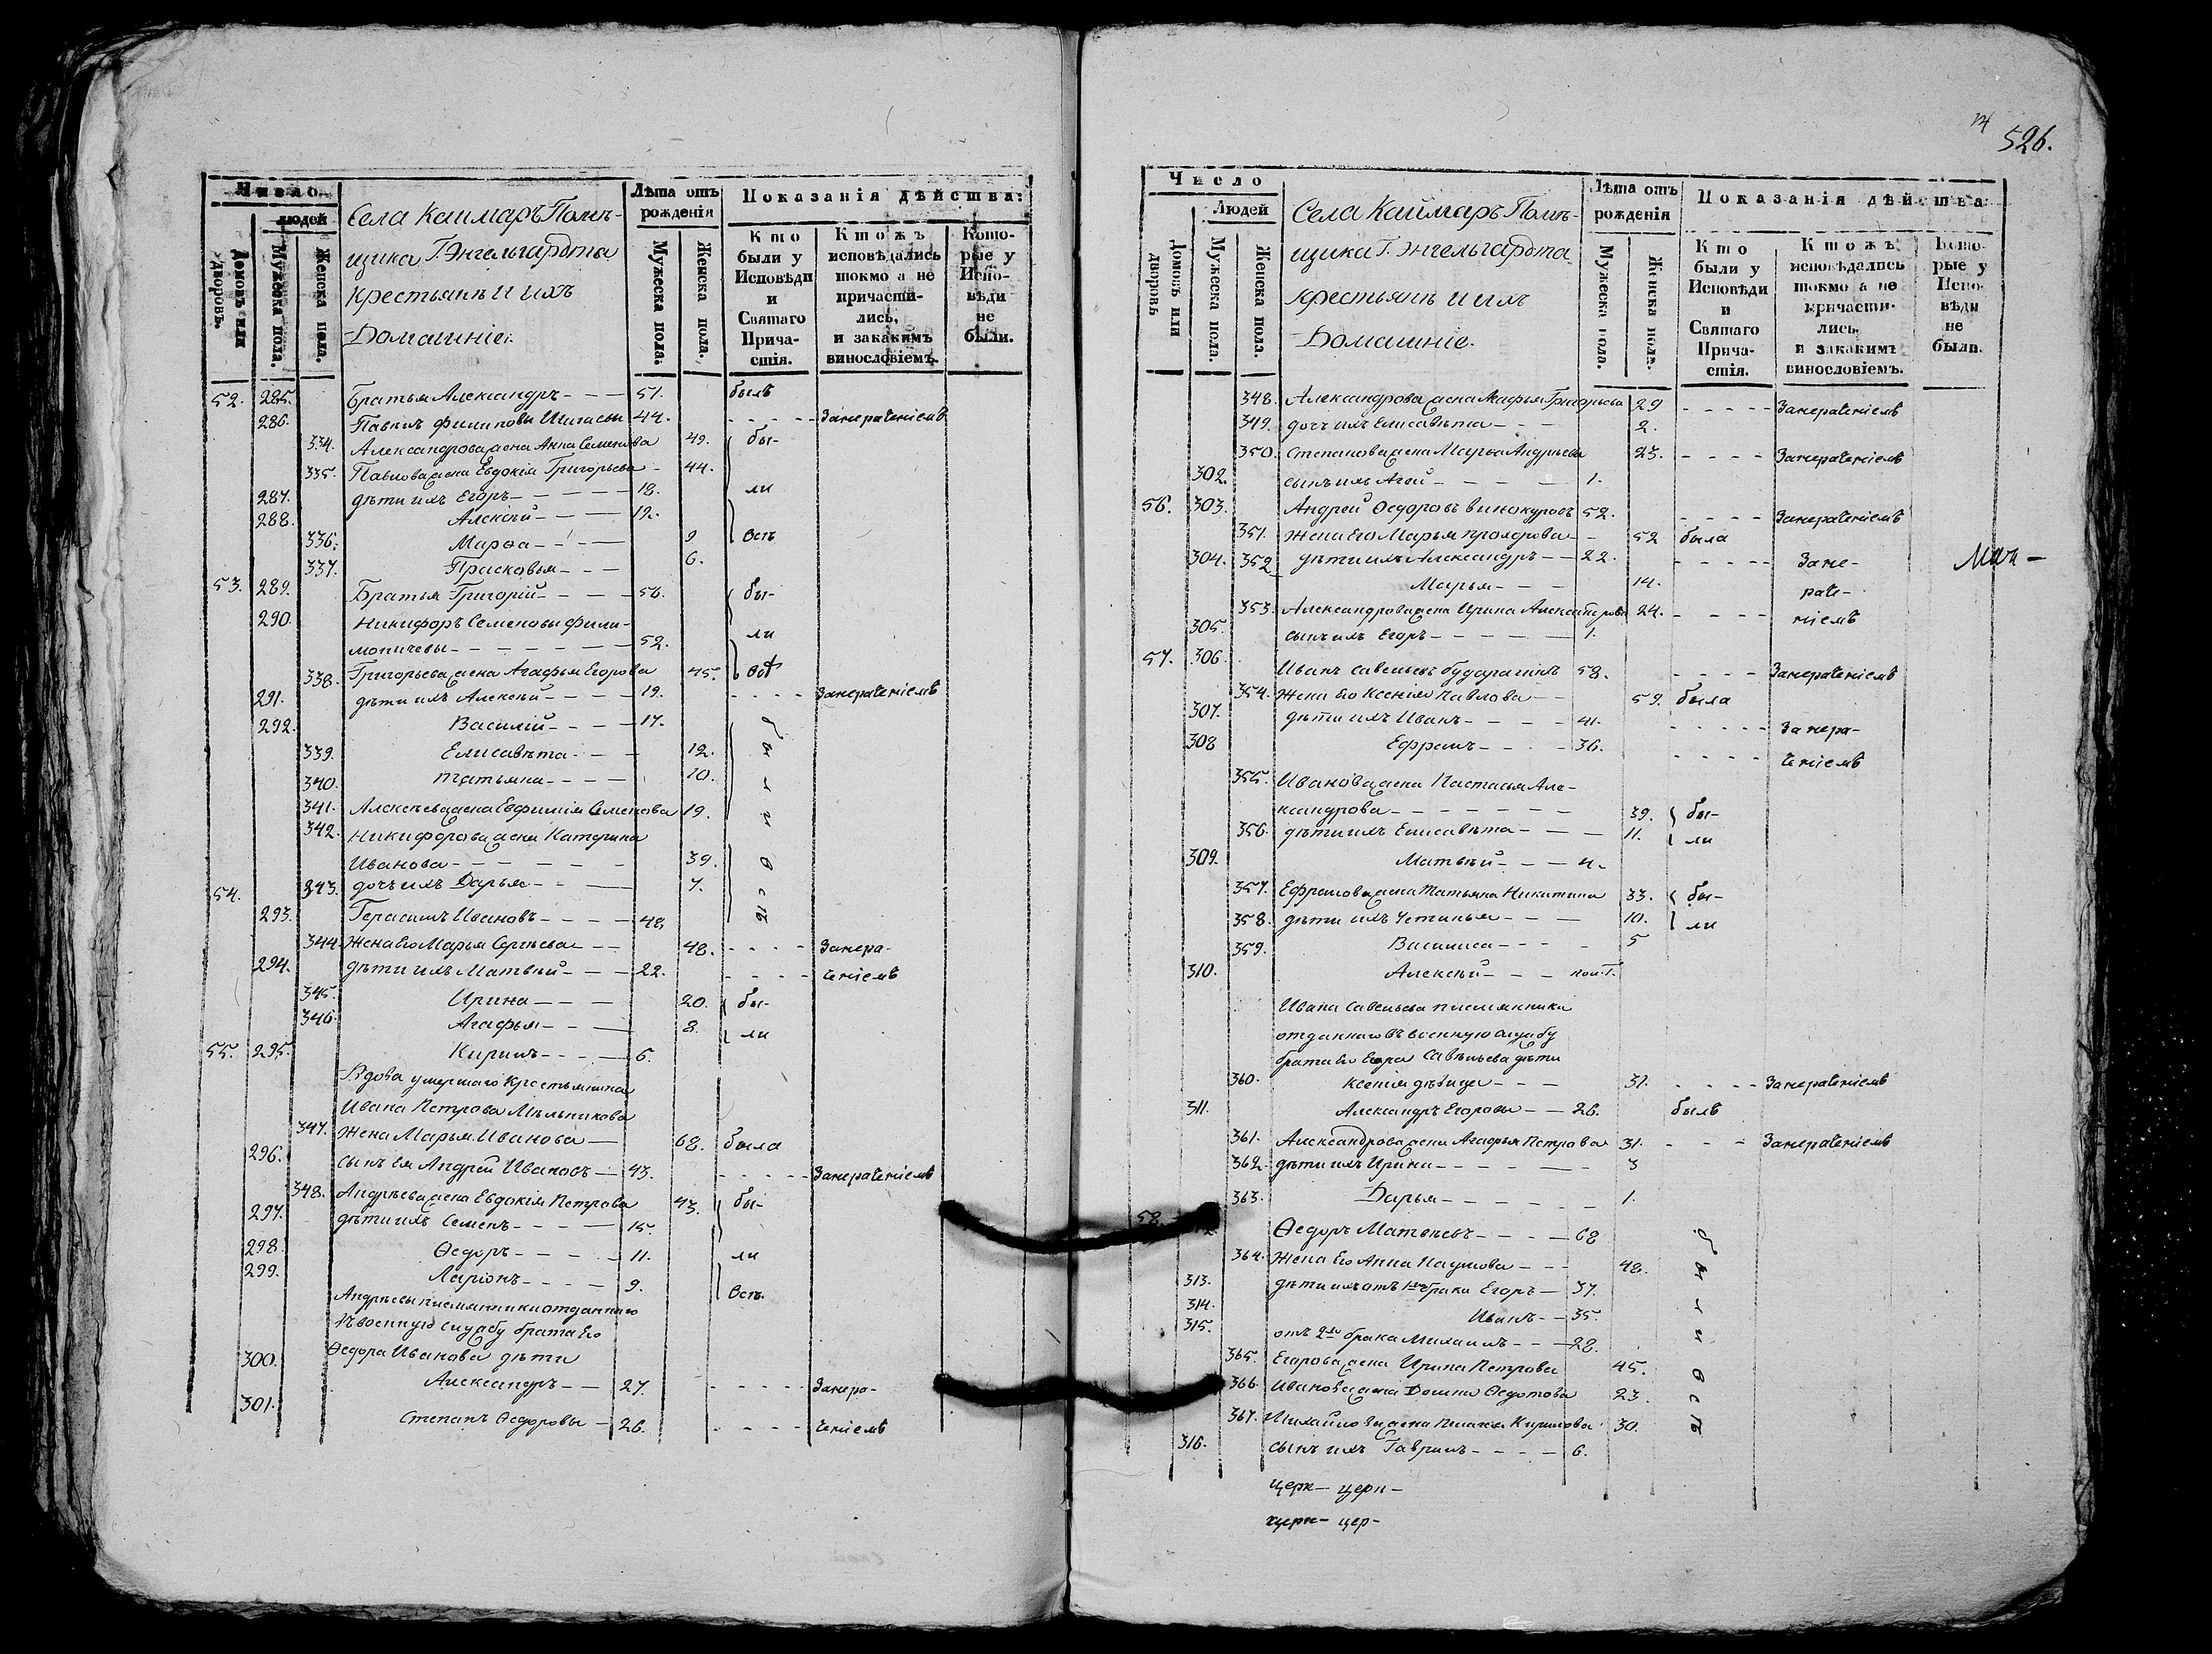 Число
людей
Домовъ или дворовъ.
Мужеска пола.
Женска пола.
Села Каимаръ Помѣ-
щика Г. Энгельгардта
Крестьянѣ И ихъ
Домашніе.
Лѣта отъ рожденія
Мужеска пола.
Женска пола.
Показанія дѣйства:
Кто были у Исповѣди и Святаго Причастія.
Ктожъ исповѣдались токмо а не причастились, и закакимъ винословіемъ.
Которые у Исповѣди не были.
52. 285. Братья Александръ 51. былъ
286. Павелъ Филиповы 44.
334. Александрова жена Анна Семенова 49. бы-
335. Павлова жена Евдокія Григорьева 44.
287. дѣти ихъ Егоръ 18. ли
288. Алексѣй 12.
336. Марѳа 9 всѣ
337. Прасковья 6.
53. 289. Братья Григорій 56. бы-
290. Никифоръ Семеновы Фили-
моничевы 52. ли
338. Григорьева жена Агафья Егорова 45. всѣ
291. дѣти ихъ Алексѣй 19.
292. Василій 17. были всѣ
339. Елисавѣта 12.
340. Татьяна 10.
341. Алексѣева жена Евфимія Семенова 19.
342. Никифорова жена Катерина
Иванова 39.
343. дочь ихъ Дарья 7.
54. 293. Герасимъ Ивановъ 48.
344. Жена Его Марья Сергѣева 48.
294. дѣти ихъ Матвѣй 22.
345. Ирина 20. бы-
346. Агафья 8. ли
55. 295. Кирилъ 6.
Вдова умершаго Крестьянина
Ивана Петрова Мѣльникова
347. Жена Марья Иванова 68. была
296. сынъ Ея Андрей Ивановъ 43.
348. Андрѣева жена Евдокія Петрова 43. бы-
297. дѣти ихъ Семенъ 15.
298. Ѳедоръ 11. ли
299. Ларіонъ 9. всѣ
Андрѣевы племянники отданнаго
въ военную службу брата Его
300. Ѳедора Иванова дѣти
Александръ 27.
301. Степанъ Ѳедоровы 26.
526.
Число
Людей
Домовъ или дворовъ
Мужеска пола.
Женска пола.
Села Каймаръ Помѣ-
щика Г. Энгельгардта
Крестьянѣ и ихъ
Домашніе.
Лѣта отъ рожденія
Мужеска пола.
Женска пола.
Показанія дѣйства
Кто были у Исповѣди и Святаго Причастія.
Ктожъ исповѣдались токмо а не причастились и закакимъ винословіемъ.
Которые у Исповѣди не были.
348. Александрова жена Марья Григорьева 29
349. дочь ихъ Елисавѣта 2.
350. Степанова жена Марѳа Андрѣева 23.
302. сынъ ихъ 1.
56. 303. Андрей Ѳедоровъ Винокуровъ 52.
351. Жена Его Марья Прохорова 52 была
304. 352 дѣти ихъ Александръ 22.
Марья 14.
353. Александрова жена Ирина Александрова 24.
305. сынъ ихъ Егоръ 1.
57. 306. Иванъ Савельевъ 58.
354. Жена Его Ксенія Павлова 59. была
307. дѣти ихъ Иванъ 41.
308 Ефремъ 36.
355. Иванова жена Настасья Але-
ксандрова 39. бы-
356. дѣти ихъ Елисавѣта 11. ли
309. Матвѣй
357. Ефремова жена Татьяна Никитина 33. бы-
358. дѣти ихъ Устинья 10. ли
359. Василиса 5
310. Алексѣй пол. г.
Ивана Савельева племянники
отданнаго въ военную службу
брата Его Егора Савельева дѣти
360. Ксенія дѣвица 31.
311. Александръ Егоровы 26. былъ
361. Александрова жена Агафья Петрова 31.
362. дѣти ихъ Ирина 3
363. Дарья 1.
58. Ѳедоръ Матвѣевъ 68 были всѣ
364. Жена Его Анна Наумова 48.
313. дѣти ихъ отъ 1го брака Егоръ 37.
314. Иванъ 35.
315. отъ 2го брака Михаилъ 28.
365. Егорова жена Ирина Петрова 45.
366. Иванова жена Домна Ѳедотова 23.
367. Михайлова жена Пелагея Кирилова 30.
316. сынъ ихъ Гаврилъ 6.
церк- церк-
церк- цер-